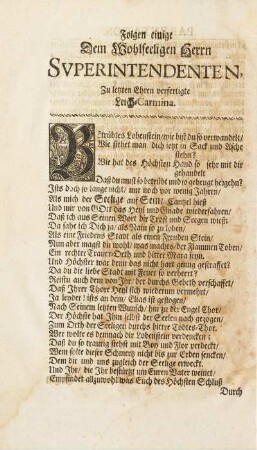 Folgen einige
Dem Wohlseeligen Herrn
SVPERINTENDENTEN,
Zu letzten Ehren verfertigte
Leich-Carmina.
BEtrübtes Lobenstein/ wie bist du so verwandelt/
Wie siehet man dich jetzt in Sack und Asche
stehn?
Wie hat des Höchsten Hand so sehr mit dir
gehandelt
Daß du must so betrübt und so gebeugt hergehn?
Ists doch so lange nicht/ nur noch vor wenig Jahren/
Als mich der Seelige auf Sein Cantzel hieß
Und mir von GOtt das Heyl und Gnade wiederfahren/
Daß ich aus Seinen Wort dir Trost und Seegen wieß:
Da sahe ich Dich ja/ als Naim so zu loben/
Als eine Friedens Stadt als einen Freuden Stein/
Nun aber magst du wohl/ was machts/ der Flammen Toben/
Ein rechter Trauer-Orth und bitter Mara seyn.
Und Höchster wie denn das nicht hart genug gestraffet?
Da du die liebe Stadt mit Feuer so verheert?
Reistu auch dem von Ihr/ der durchs Gebeth verschaffet/
Daß Ihrer Thore Heyl sich wiederum vermehrt/
Ja leyder! ists an dem/ Elias ist geflogen/
Nach Seinem letzten Wunsch/ hin zu der Engel Chor/
Der Höchste hat Ihm selbst der Seelen nach gezogen/
Zum Orth der Seeligen durchs bittre Todtes-Thor.
Wer wolte es demnach dir Lobenstein verdencken:
Daß du so traurig stehst mit Boy und Flor verdeckt/
Wem solte dieser Schmertz nicht bis zur Erden sencken/
Dem dir und uns zugleich der Seelige erweckt.
Und Ihr/ die Ihr bestürtzt um Euren Vater weinet/
Empfindet allzuwohl was Euch des Höchsten Schluß
Durch